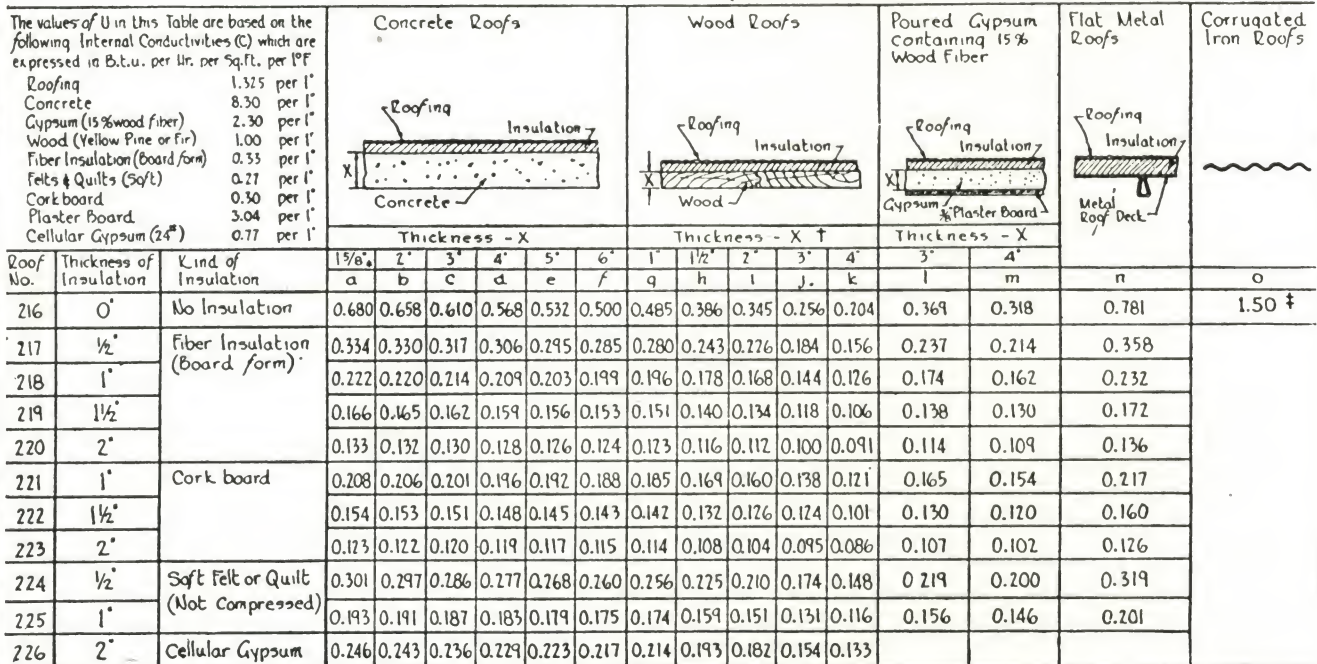 The values of U in this Table are based on the
following Internal Conductivities (C) which are
expressed in B.t.u. per Hr. per Sq.Ft. per 1°F
Roofing 1.325 per 1"
Concrete 8.30 per 1"
Gypsum (15% wood fiber) 2.30 per 1"
Wood (Yellow Pine or Fir) 1.00 per 1"
Fiber Insulation (Board form) 0.33 per 1"
Felts & Quilts (Soft) 0.27 per 1"
Cork board 0.30 per 1"
Plaster Board 3.04 per 1"
Cellular Gypsum (24#) 0.77 per 1"
Concrete Roofs
Roofing
Insulation
X
Concrete
Thickness - X
Wood Roofs
Roofing
Insulation
X
Wood
Thickness - X †
Poured Gypsum
Containing 15%
Wood Fiber
Roofing
Insulation
X
Gypsum Plaster Board
Thickness - X
Flat Metal
Roofs
Insulation
Metal
Roof Deck
Corrugated
Iron Roofs
Roof Thickness of Kind of 1 5/8" 2" 3" 4" 5" 6" 1" 1 1/2" 2" 3" 4" 3" 4"
No. Insulation Insulation a b c d e f g h i j. k l m n o
216 0" No Insulation 0.680 0.658 0.610 0.568 0.532 0.500 0.485 0.386 0.345 0.256 0.204 0.369 0.318 0.781 1.50 ‡
217 1/2" Fiber Insulation 0.334 0.330 0.317 0.306 0.295 0.285 0.280 0.243 0.226 0.184 0.156 0.237 0.214 0.358
(Board form)
218 1" 0.222 0.220 0.214 0.209 0.203 0.199 0.196 0.178 0.168 0.144 0.126 0.174 0.162 0.232
219 1 1/2" 0.166 0.165 0.162 0.159 0.156 0.153 0.151 0.140 0.134 0.118 0.106 0.138 0.130 0.172
220 2" 0.133 0.132 0.130 0.128 0.126 0.124 0.123 0.116 0.112 0.100 0.091 0.114 0.109 0.136
221 1" Cork board 0.208 0.206 0.201 0.196 0.192 0.188 0.185 0.169 0.160 0.138 0.121 0.165 0.154 0.217
222 1 1/2" 0.154 0.153 0.151 0.148 0.145 0.143 0.142 0.132 0.126 0.124 0.101 0.130 0.120 0.160
223 2" 0.123 0.122 0.120 0.119 0.117 0.115 0.114 0.108 0.104 0.095 0.086 0.107 0.102 0.126
224 1/2" Soft Felt or Quilt 0.301 0.297 0.286 0.277 0.268 0.260 0.256 0.225 0.210 0.174 0.148 0 219 0.200 0.319
(Not Compressed)
225 1" 0.193 0.191 0.187 0.183 0.179 0.175 0.174 0.159 0.151 0.131 0.116 0.156 0.146 0.201
226 2" Cellular Gypsum 0.246 0.243 0.236 0.229 0.223 0.217 0.214 0.193 0.182 0.154 0.133